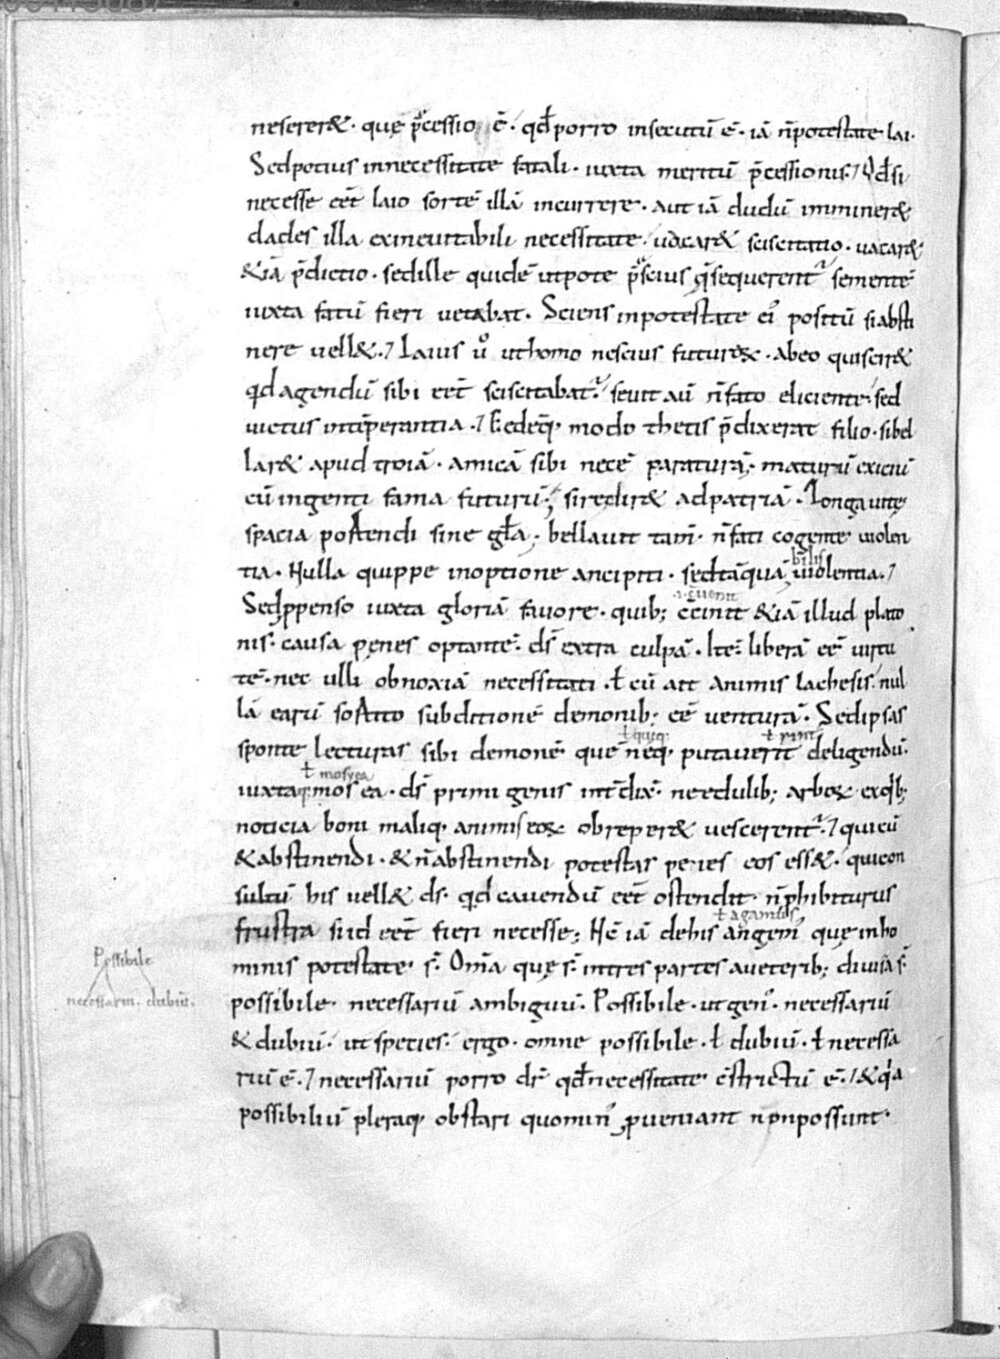 nesereret · quę p̄cessio ē · qđ porro insecutū ē · iā n̄ potestate lai ·
Sed potius in necessitate fatali · iuxta meritū p̄cessionis · Qđ si
necesse eēt laio sortē illā incurrere · aut iā dudū immineret
clades illa ex ineuitabili necessitate · uacaret sciscitatio · uacaret
& iā p̄dictio · sed ille quidē utpote p̄scius q̄ sequerent᷑ sementē
iuxta fatū fieri uetabat · Sciens in potestate ei᷒ positū si absti
nere uell& · Laius u͛o ut homo nescius futuroꝝ · ab eo qui scir&
qđ agendū sibi eēt sciscitabat᷑ · seuit aū n̄ fato eliciente · sed
uictus intēperantia · Eodēq; modo thetis p̄dixerat filio · si bel
lar& apud troiā · amicā sibi necē paraturā · maturū exiciū
cū ingenti fama futurū · si redir& ad patriā · Longa uitę
spacia portendi sine głā · bellauit tam̄ · n̄ fati cogente uiolen
tia · Nulla quippe in optione ancipiti · sed tāquā uiolentia ·
bilis
Sed ppenso iuxta gloriā fauore · quib; c̄cinit & iā illud plato
.i. c̄uenit
nis · causa penes optantē · d̄s extra culpā · Itē liberā eē uirtu
tē · nec ulli obnoxiā necessitati · ł cū ait animis lachesis · nul
lā earū sortito subditionē demonib; eē venturā · Sed ipsas
sponte lecturas sibi demonē quē neq; putauerit deligendū ·
ł quęq;
ł rint
iuxta mos ea · d̄s primigenis int̄dix̄ · ne edulib; arboꝝ ex qb;
ł moysea
noticia boni maliq; animis eoꝝ obreper& uescerent᷑ · qui cū
& abstinendi · & n̄ abstinendi potestas penes eos ess& · qui con
sultū his uell& d̄s · qđ cauendū eēt ostendit · n̄ phibiturus
frustra si id eēt fieri necesse; Hc̄ iā de his angem᷒ quę in ho
ł agamus
minis potestate s̄ · Om̄a quę s̄ in tres partes a ueterib; diuisa s̄
possibile · necessariū ambiguū · Possibile · ut gen᷒ · necessariū
& dubiū · ut species · ergo · omne possibile · ł dubiū · ł necessa
riū ē · necessariū porro dr̄ qđ necessitate c̄strictū ē · & qa
possibiliū pleraq; obstari quomin᷒ pueniant non possunt ·
Possibile
necessariū · dubiū ·